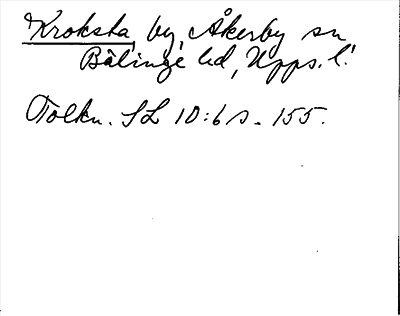 Kroksta, by, Åkerby sn
Bälinge hd, Upps. l.
Tolkn. SL 10:6 s. 155.